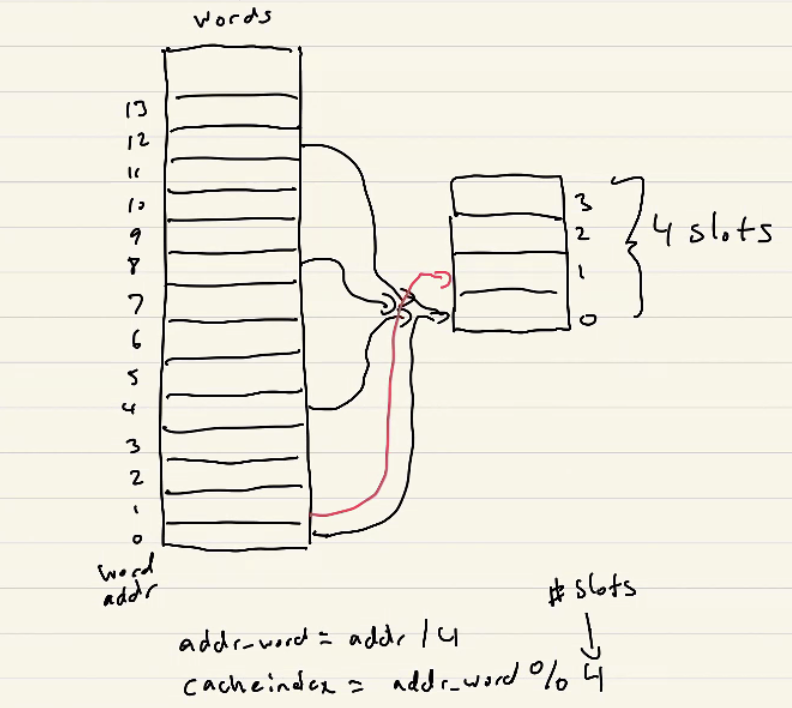 words
13
12
11
10
9
8
7
6
5
4
3
2
1
0
word
addr
3
2
1
0
4 slots
# slots
addr_word = addr / 4
cacheindex = addr_word % 4